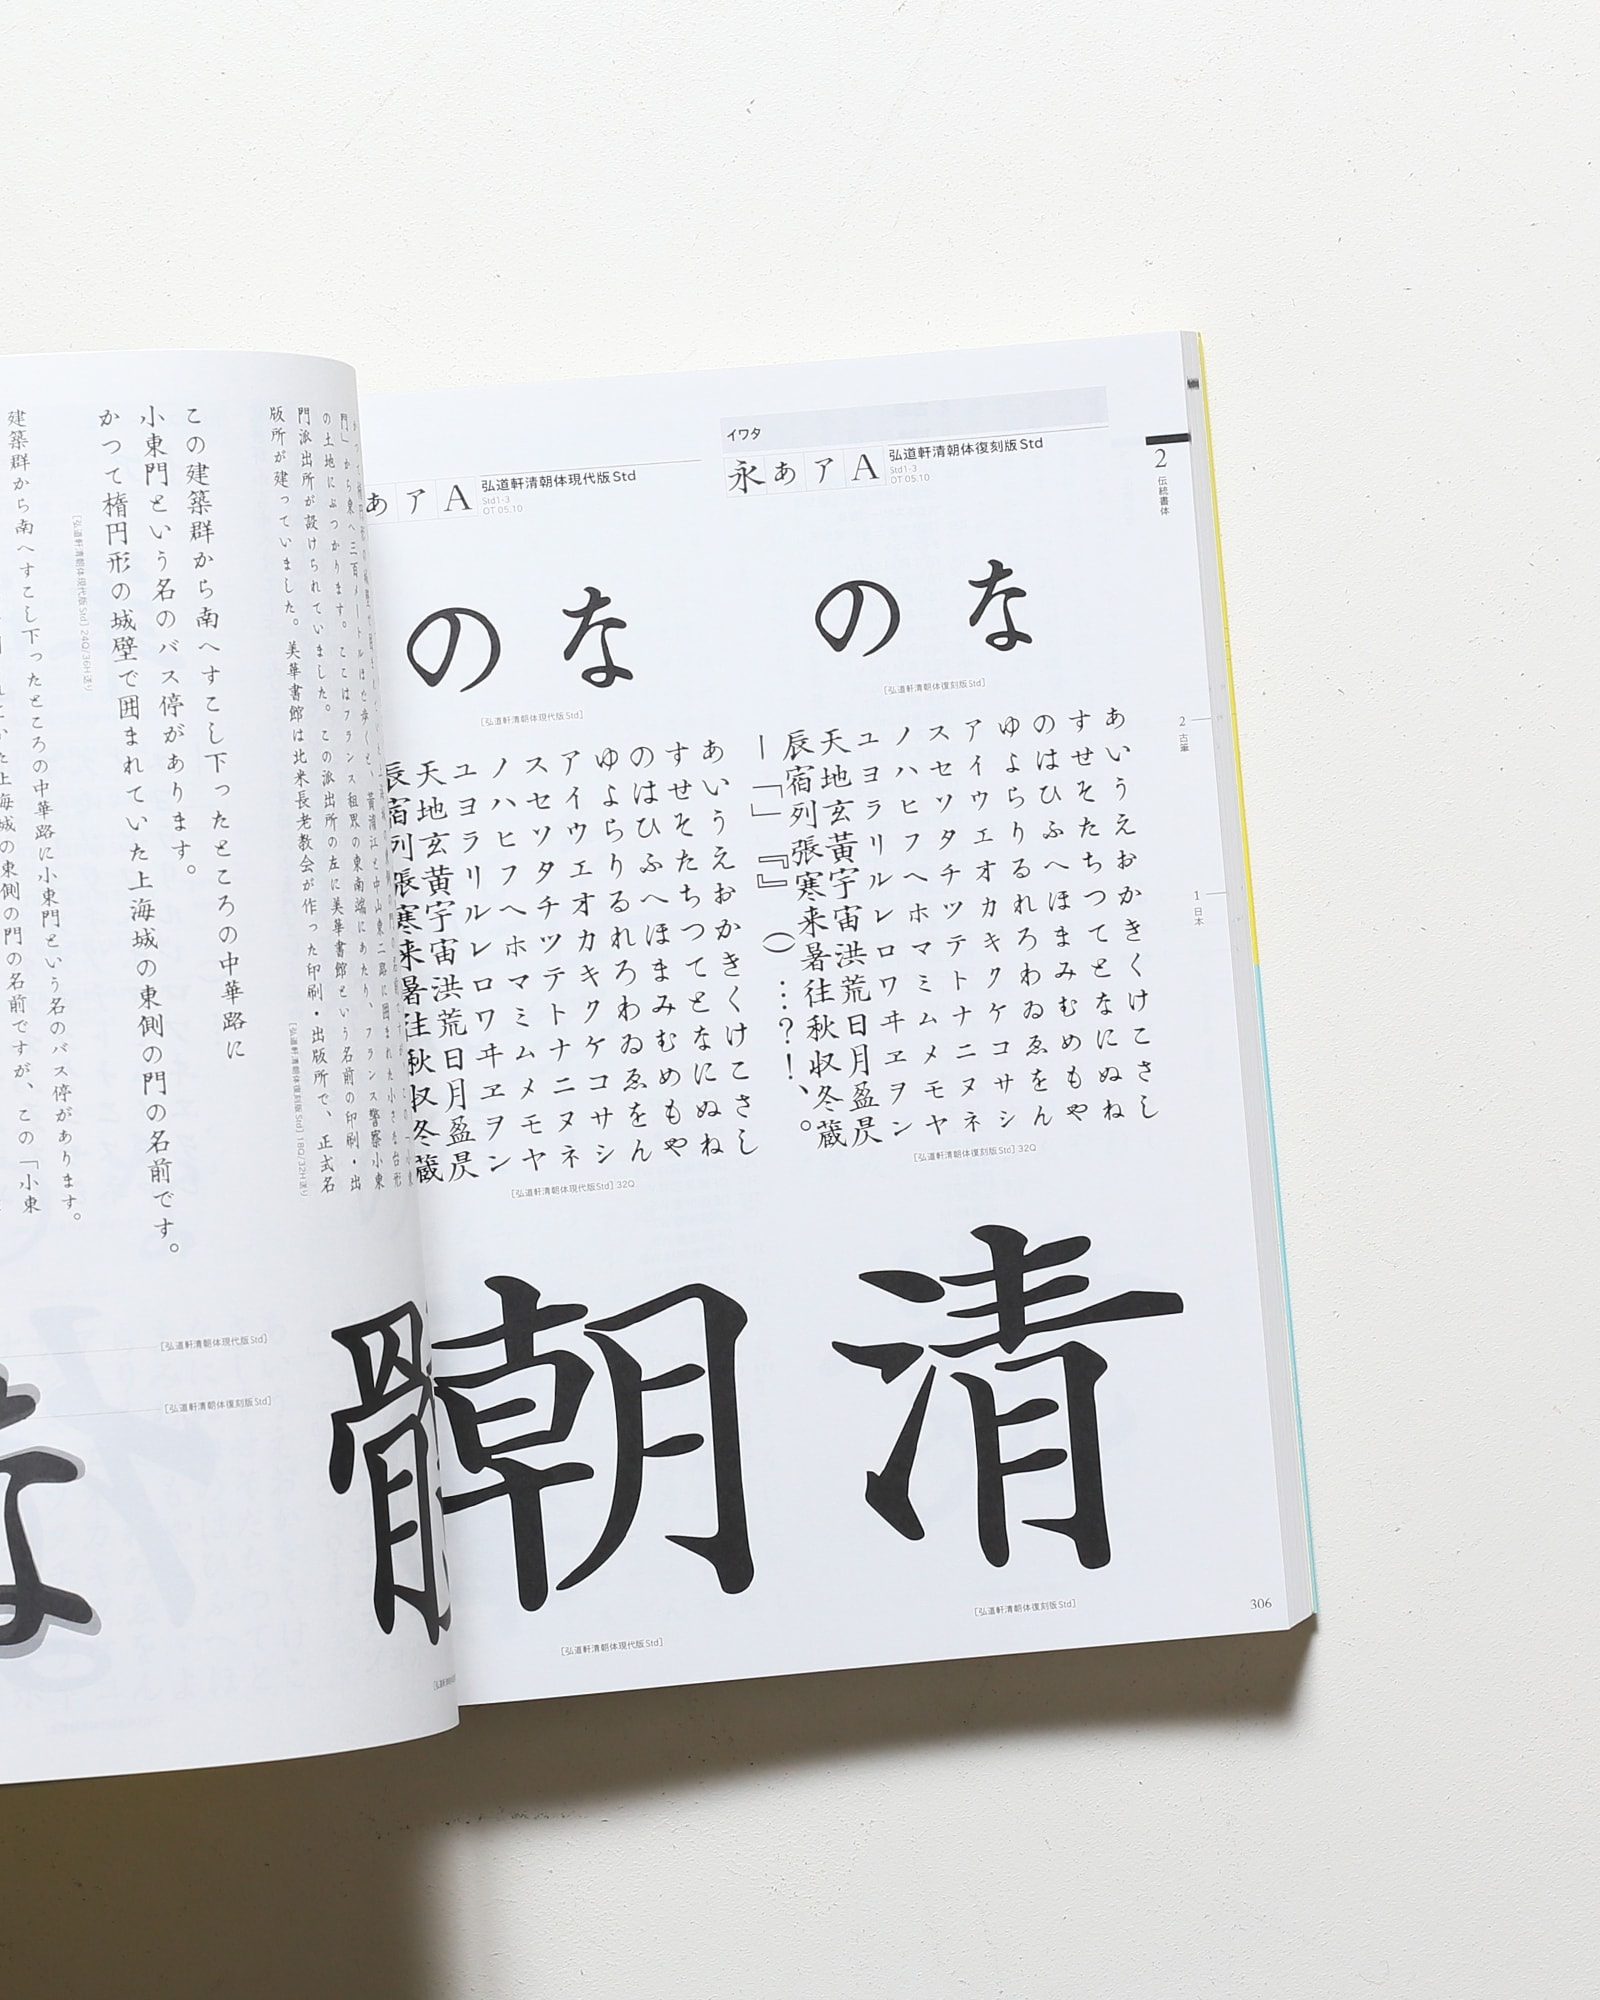 2
伝統書体
2 古筆
1 日本
イワタ
永あアA
弘道軒清朝体復刻版Std
Std1-3
OT 05.10
な
の
[弘道軒清朝体復刻版Std]
あいうえおかきくけこさし
すせそたちつてとなにぬね
のはひふへほまみむめもや
ゆよらりるれろわゐゑをん
アイウエオカキクケコサシ
スセソタチツテトナニヌネ
ノハヒフヘホマミムメモヤ
ユヨラリルレロワヰヱヲン
天地玄黃宇宙洪荒日月盈昃
辰宿列張寒来暑往秋収冬蔵
ー「」『』()…?!、。
[弘道軒清朝体復刻版Std] 32Q
清
[弘道軒清朝体復刻版Std]
306
あアA
弘道軒清朝体現代版Std
Std1-3
OT 05.10
な
の
[弘道軒清朝体現代版Std]
あいうえおかきくけこさし
すせそたちつてとなにぬね
のはひふへほまみむめもや
ゆよらりるれろわゐゑをん
アイウエオカキクケコサシ
スセソタチツテトナニヌネ
ノハヒフヘホマミムメモヤ
ユヨラリルレロワヰヱヲン
天地玄黄宇宙洪荒日月盈昃
辰宿列張寒来暑往秋収冬蔵
[弘道軒清朝体現代版Std] 32Q
朝
[弘道軒清朝体現代版Std]
門」から東へ三百メートルほど歩くと、黄浦江と中山東二路に囲まれた小さな台形
の土地にぶつかります。ここはフランス租界の東南端にあたり、フランス警察小東
門派出所が設けられていました。この派出所の左に美華書館という名前の印刷・出
版所が建っていました。美華書館は北米長老教会が作った印刷・出版所で、正式名
[弘道軒清朝体復刻版Std] 18Q/32H送り
この建築群から南へすこし下ったところの中華路に
小東門という名のバス停があります。
かつて楕円形の城壁で囲まれていた上海城の東側の門の名前です。
[弘道軒清朝体現代版Std] 24Q/36H送り
建築群から南へすこし下ったところの中華路に小東門という名のバス停があります。
上海城の東側の門の名前ですが、この「小東
[弘道軒清朝体現代版Std]
[弘道軒清朝体復刻版Std]
な